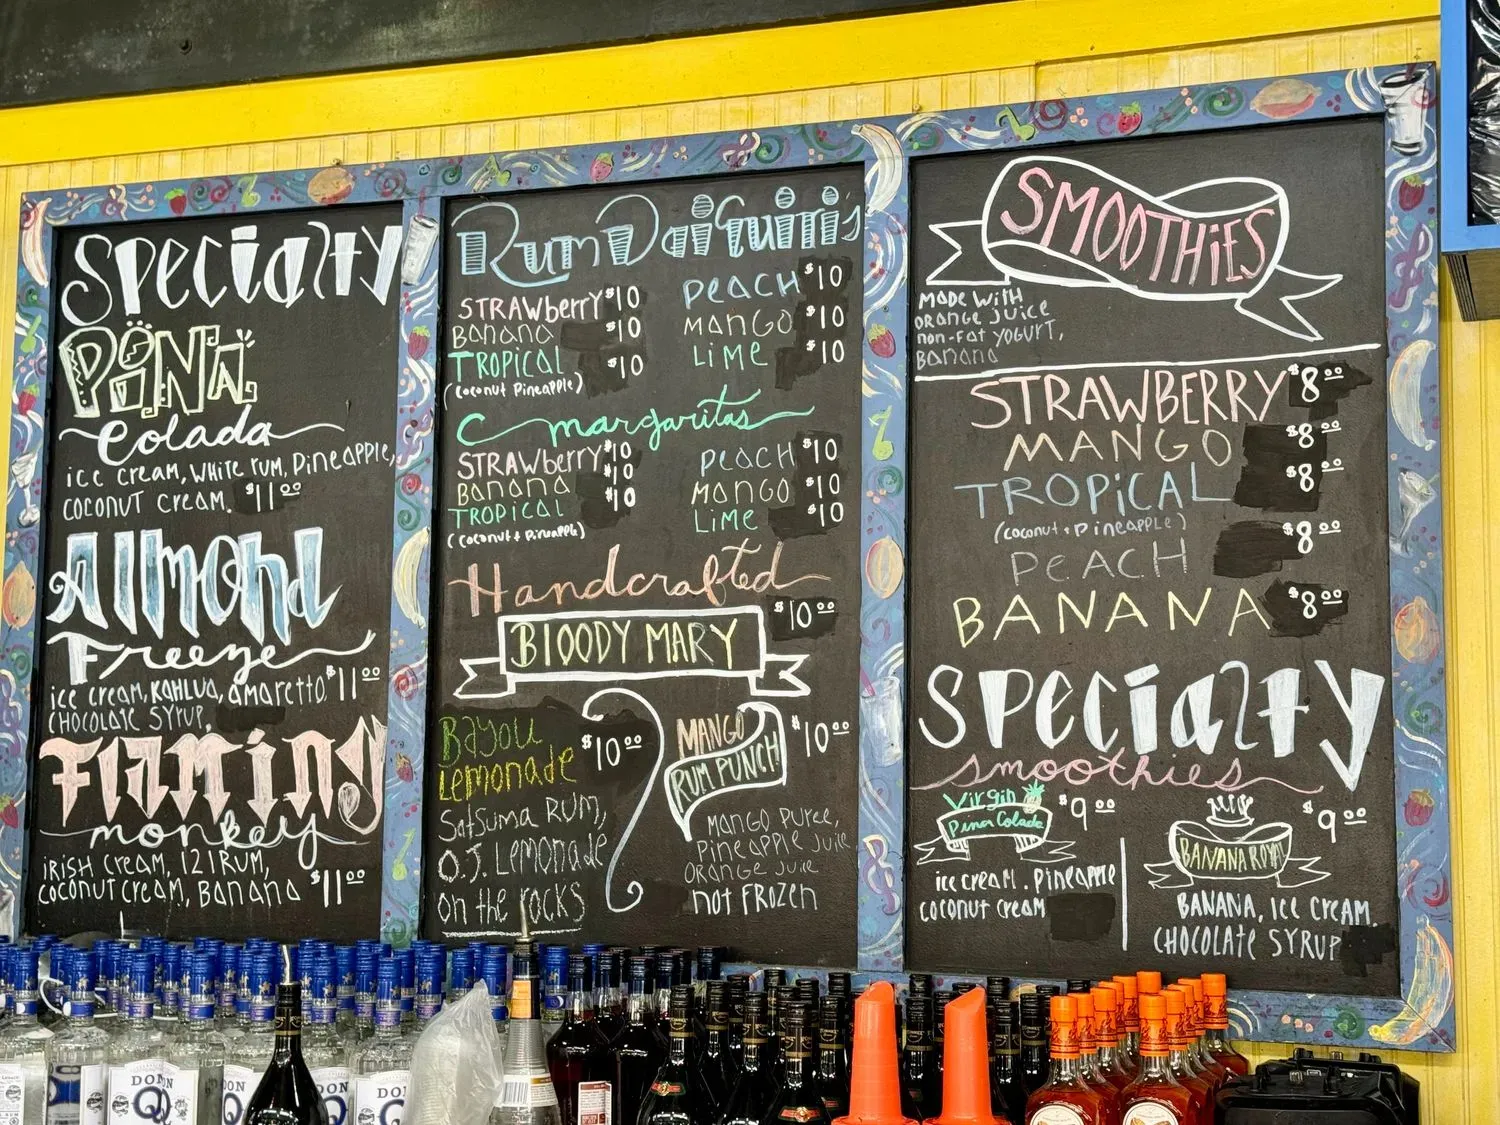 Specialty
PiNA
Colada
ice cream, white rum, pineapple,
coconut cream. $11.00
Almond
Freeze
ice cream, Kahlua, amaretto. $11.00
chocolate syrup.
Flaming
monkey
irish cream, 121 rum,
coconut cream, banana $11.00
Rum Daiquiri's
STRAWberry $10
Banana $10
TROPICAL $10
(coconut Pineapple)
Peach $10
Mango $10
Lime $10
margaritas
STRAWberry $10
Banana $10
TROPICAL $10
(coconut + Pineapple)
Peach $10
Mango $10
Lime $10
Handcrafted
BLOODY MARY $10.00
Bayou
Lemonade $10.00
Satsuma Rum,
O.J. Lemonade
on the rocks
MANGO
RUM PUNCH $10.00
Mango puree,
pineapple juice
orange juice
not frozen
SMOOTHiES
made with
orange juice
non-fat yogurt,
banana
STRAWBERRY $8.00
MANGO $8.00
TROPiCAL $8.00
(coconut + pineapple)
PEACH $8.00
BANANA $8.00
Specialty
smoothies
Virgin
Pina Colada $9.00
ice cream. pineapple
coconut cream
BANANA ROYAL $9.00
BANANA, ice cream.
chocolate syrup
DON
Q
DON
Q